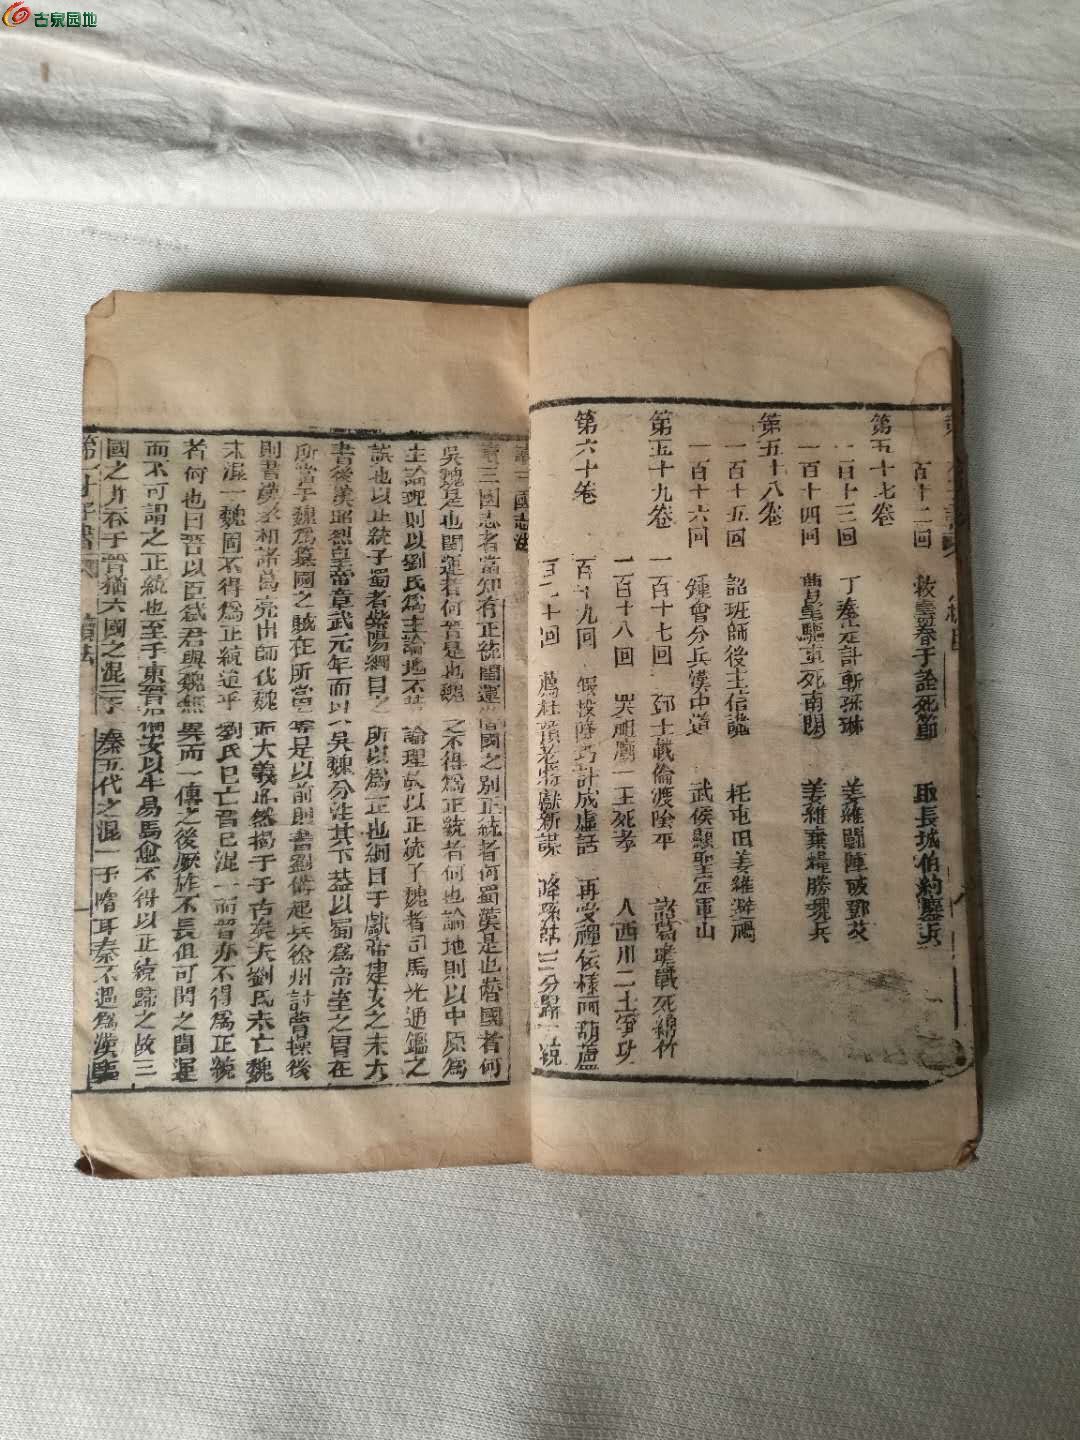 古泉园地
百十二回 救壽春于詮死節 取長城伯約鏖兵
第五十七卷
一百十三回 丁奉定計斬孫琳 姜維鬪陣破鄧艾
一百十四回 曹髦驅車死南闕 姜維棄糧勝魏兵
第五十八卷
一百十五回 詔班師後主信讒 托屯田姜維避禍
一百十六回 鍾會分兵漢中道 武侯顯聖定軍山
第五十九卷
一百十七回 鄧士載偷渡陰平 諸葛瞻戰死綿竹
一百十八回 哭祖廟一王死孝 入西川二士爭功
第六十卷
百十九回 假投降巧計成虛話 再受禪依樣画葫蘆
百二十回 薦杜預老將獻新謀 降孫皓三分歸一統
讀三國志法
讀三國志者當知有正統閏運僭國之別正統者何蜀漢是也僭國者何
吳魏是也閏運者何晉是也魏之不得爲正統者何也論地則以中原爲
主論理則以劉氏爲主論地不若論理故以正統予魏者司馬光通鑑之
誤也以正統予蜀者紫陽綱目之所以爲正也綱目于獻帝建安之末大
書後漢昭烈皇帝章武元年而以吳魏分注其下蓋以蜀爲帝室之胄在
所當予魏爲篡國之賊在所當奪是以前則書劉備起兵徐州討曹操後
則書漢丞相諸葛亮出師伐魏而大義昭然揭于千古矣夫劉氏未亡魏
未混一魏固不得爲正統迨乎劉氏已亡晋已混一而晋亦不得爲正統
者何也曰晋以臣弑君與魏無異而一傳之後厥祚不長但可謂之閏運
而不可謂之正統也至于東晋偏安以牛易馬愈不得以正統歸之故三
國之并吞于晋猶六國之混一于秦五代之混一于隋耳秦不過爲漢驅
第一才子書 讀法